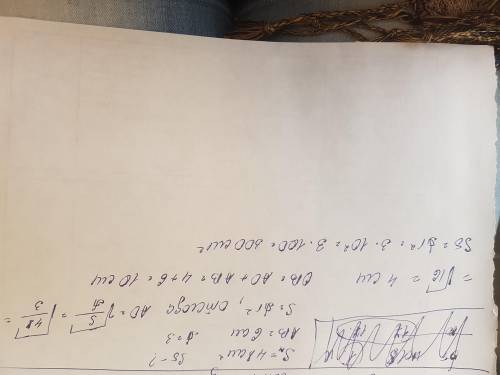 Sм = 48 см² SБ - ?
AB = 6 см π = 3
S = πr², отсюда AO = √S/π = √48/3 =
= √16 = 4 см OB = AO + AB = 4 + 6 = 10 см
SБ = πr² = 3 · 10² = 3 · 100 = 300 см²